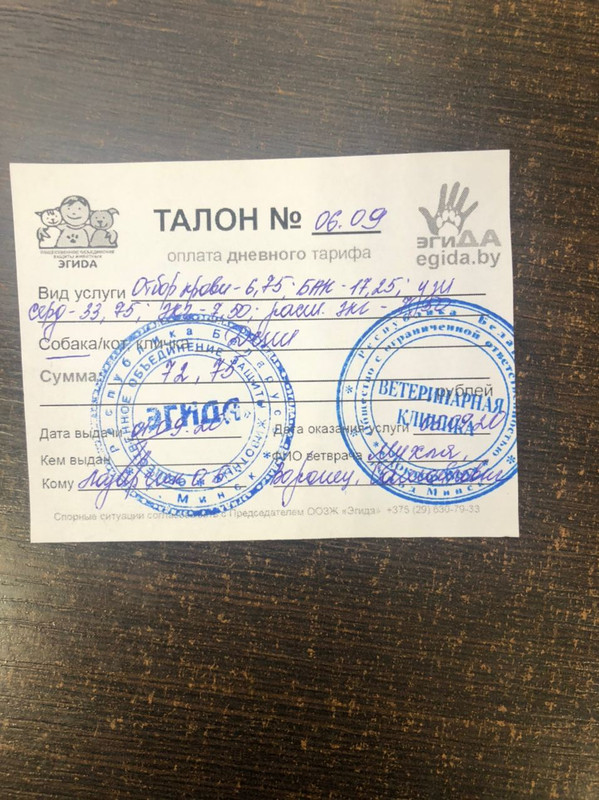 ОБЩЕСТВЕННОЕ ОБЪЕДИНЕНИЕ
ЗАЩИТЫ ЖИВОТНЫХ
ЭГИДА
ТАЛОН № 06.09
оплата дневного тарифа
ЭГИДА
egida.by
Вид услуги Отбор крови - 6,75; БАК - 17,25; узи
серд - 33,75; ЭКГ - 7,50; расш. ЭКГ - 7,50
Собака/кот, кличка
Сумма 72,75 рублей
Дата выдачи Дата оказания услуги
Кем выдан ФИО ветврача
Кому Воронец,
Спорные ситуации с Председателем ООЗЖ «Эгида» +375 (29) 630-79-33
Республика Беларусь
ЭГИДА
Минск
Республика Беларусь
Общество с ограниченной ответственностью
ВЕТЕРИНАРНАЯ
КЛИНИКА